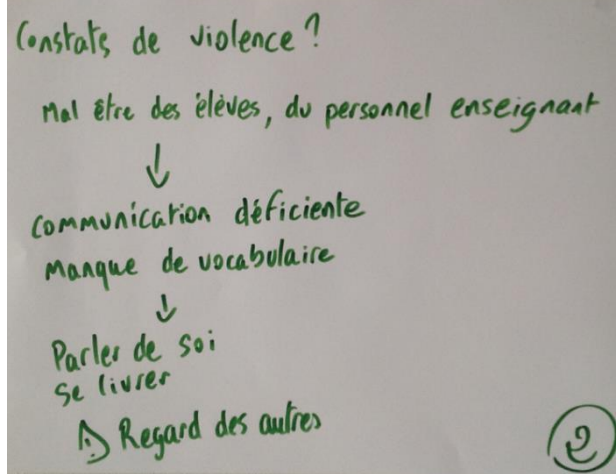 Constats de violence?
Mal être des élèves, du personnel enseignant
↓
Communication déficiente
Manque de vocabulaire
↓
Parler de soi
Se livrer
⚠ Regard des autres
2